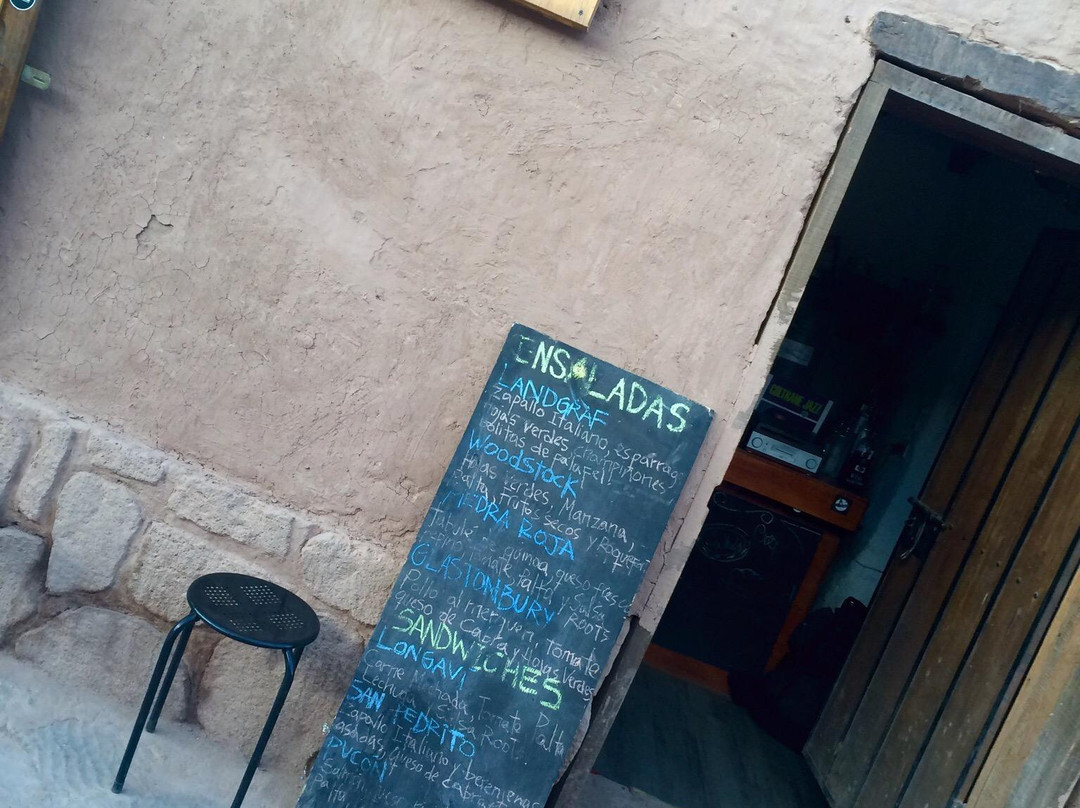 ENSALADAS
LANDGRAF
Zapallo Italiano, esparrag
hojas verdes, champiñones,
bolitas de falafel!
WOODSTOCK
Hojas verdes, Manzana,
Palta, Frutos secos y Roquefort
PIEDRA ROJA
Tabulé de quinoa, queso fresco
tomate, palta y salsa ROOTS
GLASTONBURY
Pollo al merquen, Tomate
queso de cabra y Hojas verdes
SANDWICHES
LONGAVI
Carne Mechada, Tomate, Palta
Lechuga, Salsa ROOT.
SAN PEDRITO
Zapallo Italiano y berenjenas
asadas, queso de cabra
PUCON
COLTRANE JAZZ